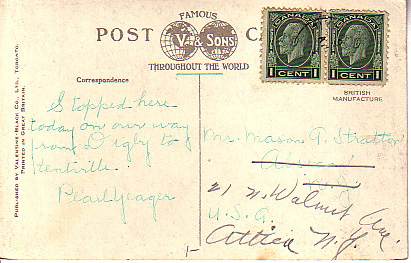 FAMOUS
POST CA
V. & SONS
THROUGHOUT THE WORLD
CANADA
1 CENT 1
CANADA
1 CENT 1
BRITISH
MANUFACTURE
Correspondence
Stopped here
today on our way
from Digby to
Kentville.
Pearl Yeager
Mrs. Mason P. Stratton
21 N. Walnut Ave.
U.S.A.
Attica N.Y.
PUBLISHED BY VALENTINE-BLACK CO., LTD., TORONTO.
PRINTED IN GREAT BRITAIN.